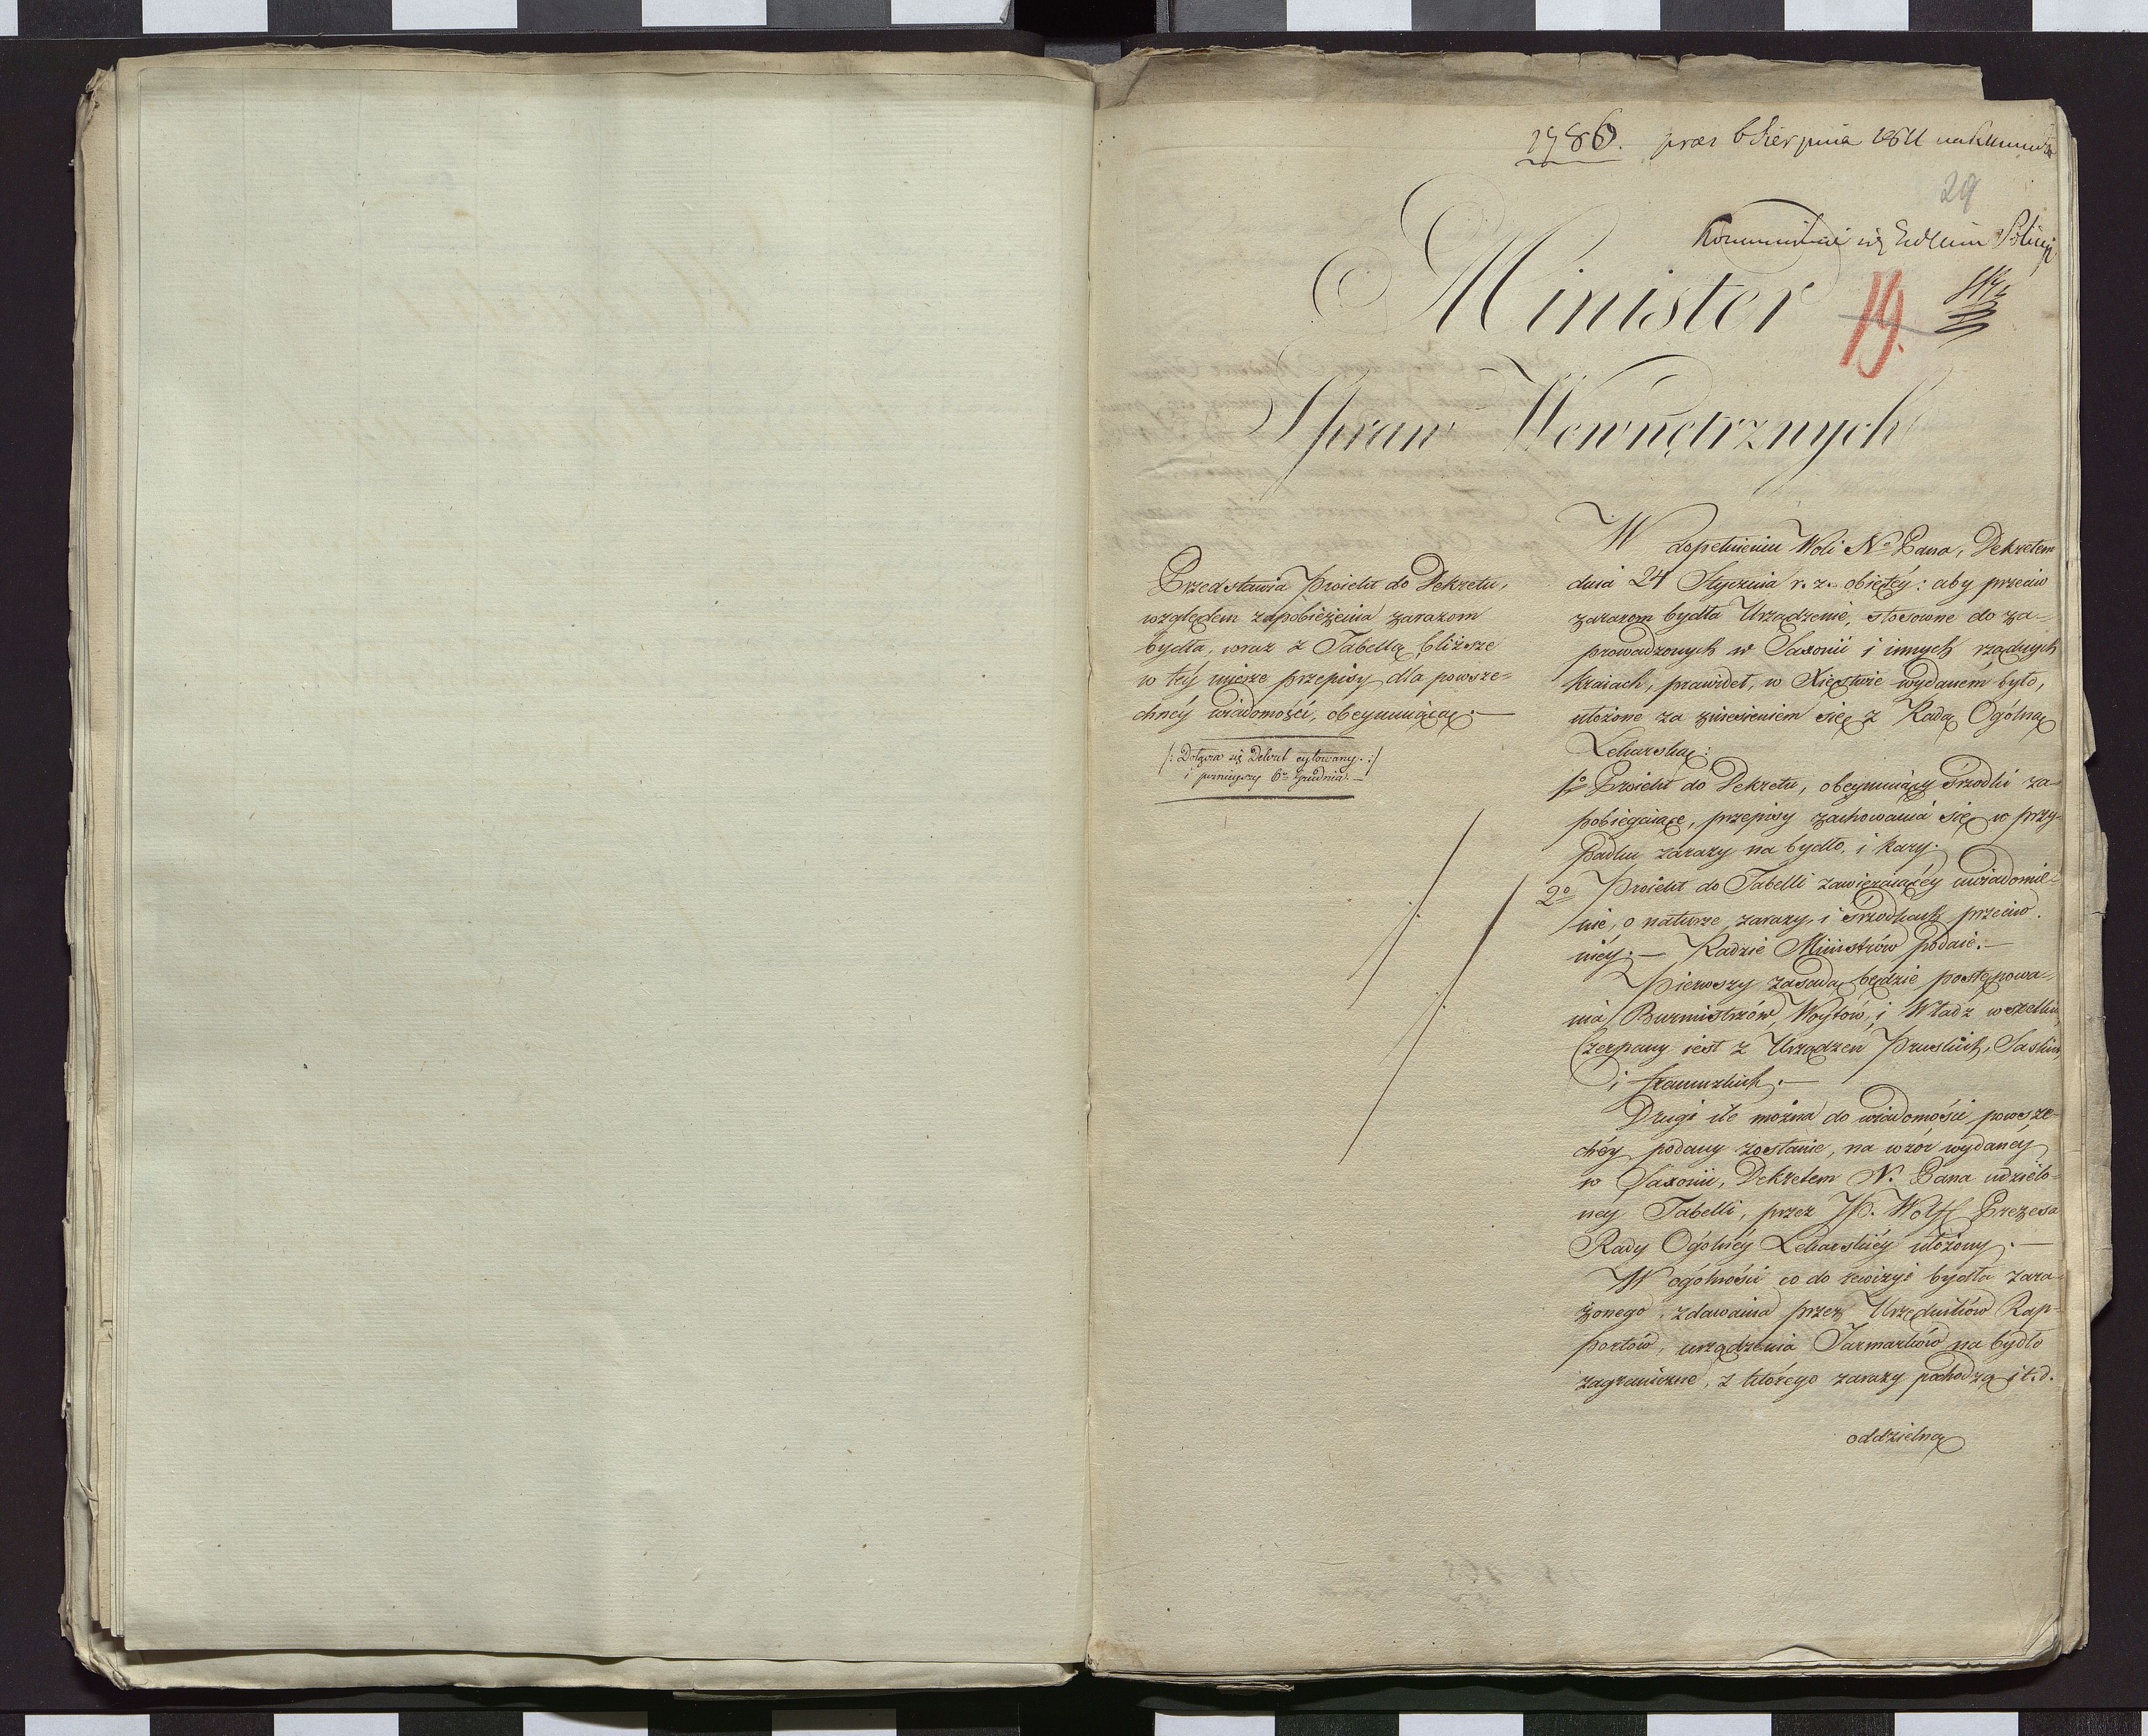 1786. præs 6 Sierpnia 1811
29
Minister
19.
Spraw Wewnętrznych
Przedstawia Proiekt do Dekretu,
względem zapobieżenia zarazom
bydła, wraz z Tabellą bliższe
w téy mierze przepisy dla powsze-
chnéy wiadomości, obeymuiącą.—
/: Dołącza się Dekret cytowany :/
W dopełnieniu Woli No Pana, Dekretem
dnia 24 Stycznia r. z. obiętéy: aby przeciw
zarazom bydła Urządzenie, stosowne do za-
prowadzonych w Saxonii i innych rządnych
kraiach, prawideł, w Xięstwie wydanem było,
ułożone za zniesieniem się z Radą Ogólną
Lekarską:
1o Proiekt do Dekretu, obeymuiący śrzodki za-
pobiegaiące, przepisy zachowania się w przy-
padku zarazy na bydło, i kary.
2o Proiekt do Tabelli zawieraiącéy uwiadomie-
nie, o naturze zarazy, i śrzodkach przeciw
niéy.— Radzie Ministrów podaie.—
Pierwszy zasadą będzie postępowa-
nia Burmistrzów, Woytów, i Władz wszelkich
czerpany iest z Urządzeń Pruskich, Saskich
i francuzkich.—
Drugi ile można do wiadomości powsze-
chéy podany zostanie, na wzór wydanéy
w Saxonii, Dekretem N. Pana udzielo-
néy Tabelli, przez JP. Wolff Prezesa
Rady Ogólnéy Lekarskiéy ułożony.—
W ogólności co do rewizyi bydła zara-
żonego, zdawania przez Urzędników Rap-
portów, urządzenia Jarmarków na bydło
zagraniczne, z którego zarazy pochodzą i t. d.
oddzielną